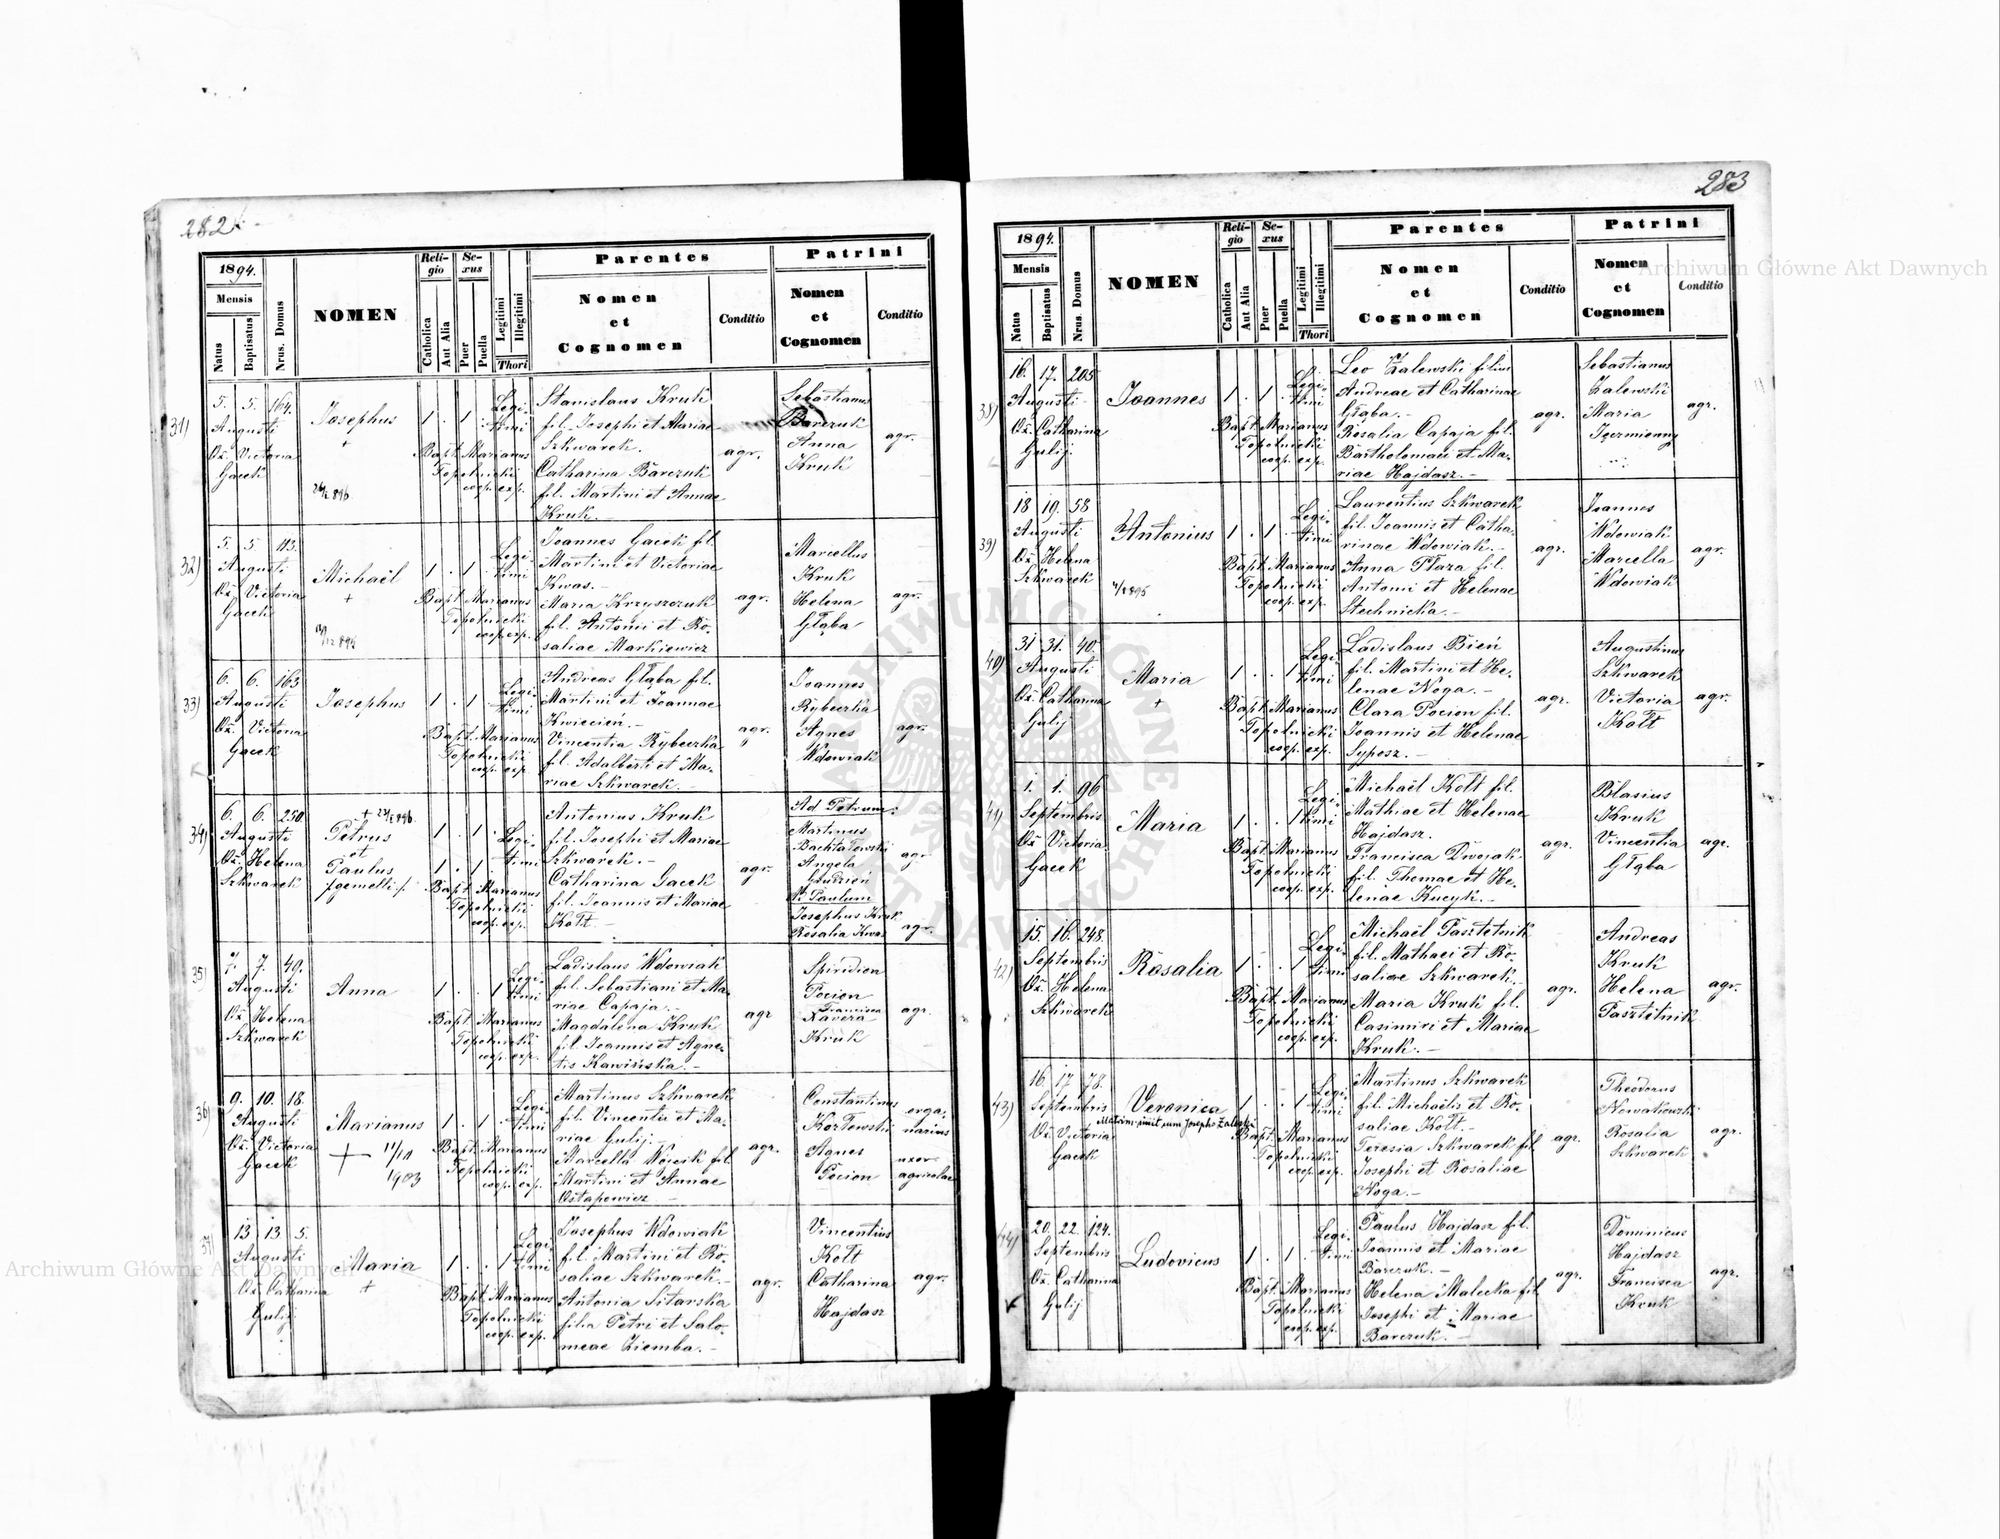 282
1894.
Mensis
Natus
Baptisatus
Nrus. Domus
NOMEN
Religio
Catholica
Aut Alia
Sexus
Puer
Puella
Legitimi
Illegitimi
Thori
Parentes
Nomen
et
Cognomen
Conditio
Patrini
Nomen
et
Cognomen
Conditio
31)
5. 5. 164.
Augusti
Obs. Victoria
Gacek
Josephus
+
1 . 1 .
Legi-
timi
Bapt. Marianus
Topolnicki
coop. exp.
Stanislaus Kruk
fil. Josephi et Mariae
Szkwarek.
Catharina Barczuk
fil. Martini et Annae
Kruk.
agr.
Sebastianus
Barczuk
Anna
Kruk
agr.
32)
5. 5. 113.
Augusti
Obs. Victoria
Gacek
Michaël
+
1 . 1 .
Legi-
timi
Bapt. Marianus
Topolnicki
coop. exp.
Joannes Gacek fil.
Martini et Victoriae
Kwas.
Maria Krzyszczuk
fil. Antonii et Ro-
saliae Markiewicz
agr.
Marcellus
Kruk
Helena
Głąba
agr.
33)
6. 6. 163
Augusti
Obs. Victoria
Gacek
Josephus
1 . 1 .
Legi-
timi
Bapt. Marianus
Topolnicki
coop. exp.
Andreas Głąba fil.
Martini et Joannae
Kwiecień.
Vincentia Rybeczka
fil. Adalberti et Ma-
riae Szkwarek.
agr.
Joannes
Rybeczka
Agnes
Wdowiak
agr.
34)
6. 6. 250.
Augusti
Obs. Helena
Szkwarek
Petrus
et
Paulus
/gemelli/
1 . 1 .
1 . 1 .
Legi-
timi
Bapt. Marianus
Topolnicki
coop. exp.
Antonius Kruk
fil. Josephi et Mariae
Szkwarek.
Catharina Gacek
fil. Joannis et Mariae
Kołt.
agr.
Ad Petrum:
Martinus
Angela
Grudzień
Ad Paulum
Josephus Kruk
Rosalia Kwas
agr.
agr.
35)
7. 7. 49.
Augusti
Obs. Helena
Szkwarek
Anna
1 . . 1
Legi-
timi
Bapt. Marianus
Topolnicki
coop. exp.
Ladislaus Wdowiak
fil. Sebastiani et Ma-
riae Capaja.
Magdalena Kruk
fil. Joannis et Agne-
tis Kawińska.
agr
Spiridion
Pocion
Francisca
Xavera
Kruk
agr.
36)
9. 10. 18.
Augusti
Obs. Victoria
Gacek
Marianus
+ 11/10
1903
1 . 1 .
Legi-
timi
Bapt. Marianus
Topolnicki
coop. exp.
Martinus Szkwarek
fil. Vincentii et Ma-
riae Gulij.
Marcella
Martini et Annae
Ostapowicz
agr.
Constantinus
Kozłowski
Agnes
Pocion
orga-
narius
uxor
agricolae
37)
13 13 5.
Augusti
Obs. Catharina
Gulij.
Maria
+
1 . . 1
Legi-
timi
Bapt. Marianus
Topolnicki
coop. exp.
Josephus Wdowiak
fil. Martini et Ro-
saliae Szkwarek.
Antonia Sitarska
filia Petri et Salo-
meae Ziemba.
agr.
Vincentius
Kołt
Catharina
Hajdasz
agr.
283
1894.
Mensis
Natus
Baptisatus
Nrus. Domus
NOMEN
Religio
Catholica
Aut Alia
Sexus
Puer
Puella
Legitimi
Illegitimi
Thori
Parentes
Nomen
et
Cognomen
Conditio
Patrini
Nomen
et
Cognomen
Conditio
38)
16. 17. 205
Augusti
Obs. Catharina
Gulij.
Joannes
1 . 1 .
Legi-
timi
Bapt. Marianus
Topolnicki
coop. exp.
Leo Zalewski filius
Andreae et Catharinae
Głąba.
Rosalia Capaja fil.
Bartholomaei et Ma-
riae Hajdasz.
agr.
Sebastianus
Zalewski
Maria
agr.
39)
18 19. 58
Augusti
Obs. Helena
Szkwarek
Antonius
1 . 1 .
Legi-
timi
Bapt. Marianus
Topolnicki
coop. exp.
Laurentius Szkwarek
fil. Joannis et Catha-
rinae Wdowiak.
Anna Płaza fil.
Antonii et Helenae
Stechnicka.
agr.
Joannes
Wdowiak
Marcella
Wdowiak
agr.
40)
31 31. 40.
Augusti
Obs. Catharina
Gulij
Maria
+
1 . . 1
Legi-
timi
Bapt. Marianus
Topolnicki
coop. exp.
Ladislaus Bień
fil. Martini et He-
lenae Noga.
Clara Pocion fil.
Joannis et Helenae
Syposz.
agr.
Augustinus
Szkwarek
Victoria
Kołt
agr.
41)
1. 1. 96
Septembris
Obs. Victoria
Gacek
Maria
1 . . 1
Legi-
timi
Bapt. Marianus
Topolnicki
coop. exp.
Michaël Kołt fil.
Mathiae et Helenae
Hajdasz.
Francisca Dwojak
fil. Thomae et He-
lenae Kucyk.
agr.
Blasius
Kruk
Vincentia
Głąba
agr.
42)
15. 16. 248.
Septembris
Obs. Helena
Szkwarek
Rosalia
1 . . 1
Legi-
timi
Bapt. Marianus
Topolnicki
coop. exp.
Michaël Pasztetnik
fil. Mathaei et Ro-
saliae Szkwarek.
Maria Kruk fil.
Casimiri et Mariae
Kruk.
agr.
Andreas
Kruk
Helena
Pasztetnik
agr.
43)
16. 17 78.
Septembris
Obs. Victoria
Gacek
Veronica
cum Josepho Zaleski
1 . . 1
Legi-
timi
Bapt. Marianus
Topolnicki
coop. exp.
Martinus Szkwarek
fil. Michaëlis et Ro-
saliae Kołt.
Teresia Szkwarek fil.
Josephi et Rosaliae
Noga.
agr.
Theodorus
Nowakowski
Rosalia
Szkwarek
agr.
44)
20. 22. 124.
Septembris
Obs. Catharina
Gulij
Ludovicus
1 . 1 .
Legi-
timi
Bapt. Marianus
Topolnicki
coop. exp.
Paulus Hajdasz fil.
Joannis et Mariae
Barczuk.
Helena Malecka fil
Josephi et Mariae
Barczuk.
agr.
Dominicus
Hajdasz
Francisca
Kruk
agr.
Archiwum Główne Akt Dawnych
Archiwum Główne Akt Dawnych
ARCHIWUM GŁÓWNE AKT DAWNYCH